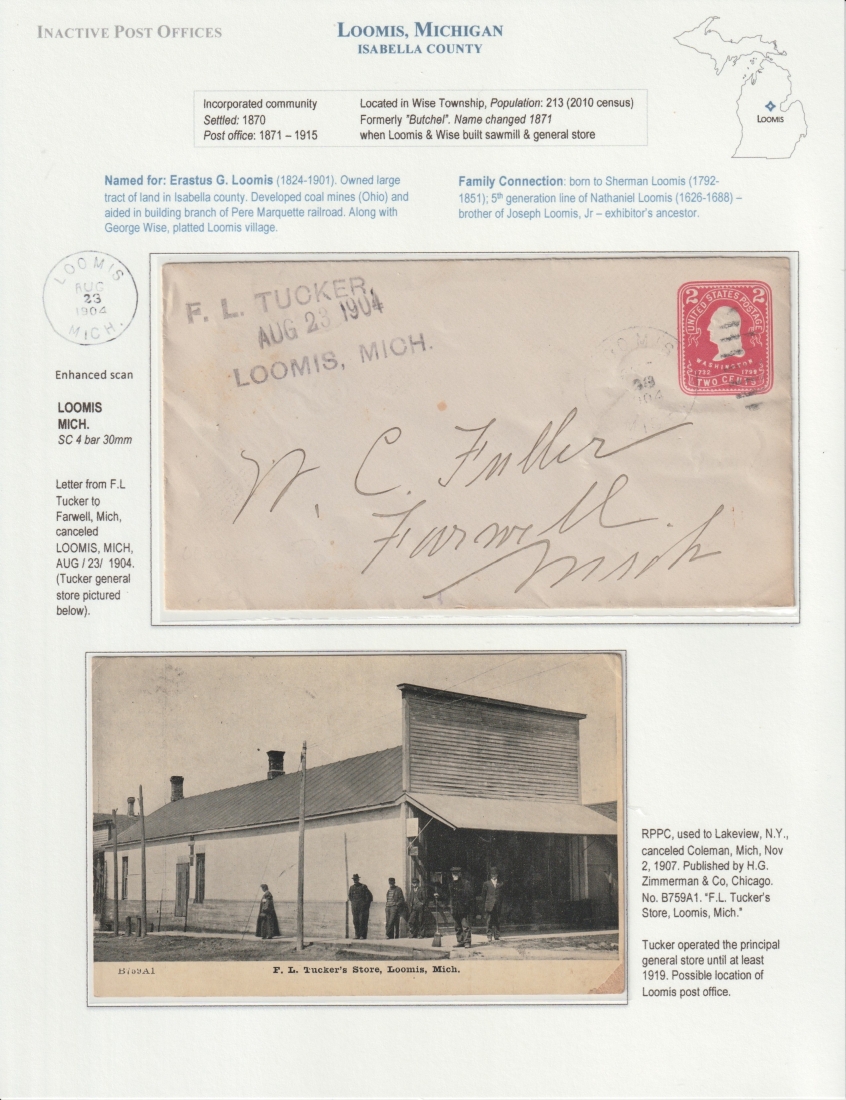 INACTIVE POST OFFICES
LOOMIS, MICHIGAN
ISABELLA COUNTY
LOOMIS
Incorporated community
Settled: 1870
Post office: 1871 – 1915
Located in Wise Township, Population: 213 (2010 census)
Formerly "Butchel". Name changed 1871
when Loomis & Wise built sawmill & general store
Named for: Erastus G. Loomis (1824-1901). Owned large
tract of land in Isabella county. Developed coal mines (Ohio) and
aided in building branch of Pere Marquette railroad. Along with
George Wise, platted Loomis village.
Family Connection: born to Sherman Loomis (1792-
1851); 5th generation line of Nathaniel Loomis (1626-1688) –
brother of Joseph Loomis, Jr – exhibitor's ancestor.
LOOMIS
AUG
23
1904
MICH.
Enhanced scan
LOOMIS
MICH.
SC 4 bar 30mm
Letter from F.L
Tucker to
Farwell, Mich,
canceled
LOOMIS, MICH,
AUG / 23/ 1904.
(Tucker general
store pictured
below).
F. L. TUCKER,
AUG 23 1904
LOOMIS, MICH.
2 2
UNITED STATES POSTAGE
WASHINGTON
1732 1799
TWO CENTS
W. C. Fuller
Farwell
Mich
B759A1
F. L. Tucker's Store, Loomis, Mich.
RPPC, used to Lakeview, N.Y.,
canceled Coleman, Mich, Nov
2, 1907. Published by H.G.
Zimmerman & Co, Chicago.
No. B759A1. "F.L. Tucker's
Store, Loomis, Mich."
Tucker operated the principal
general store until at least
1919. Possible location of
Loomis post office.